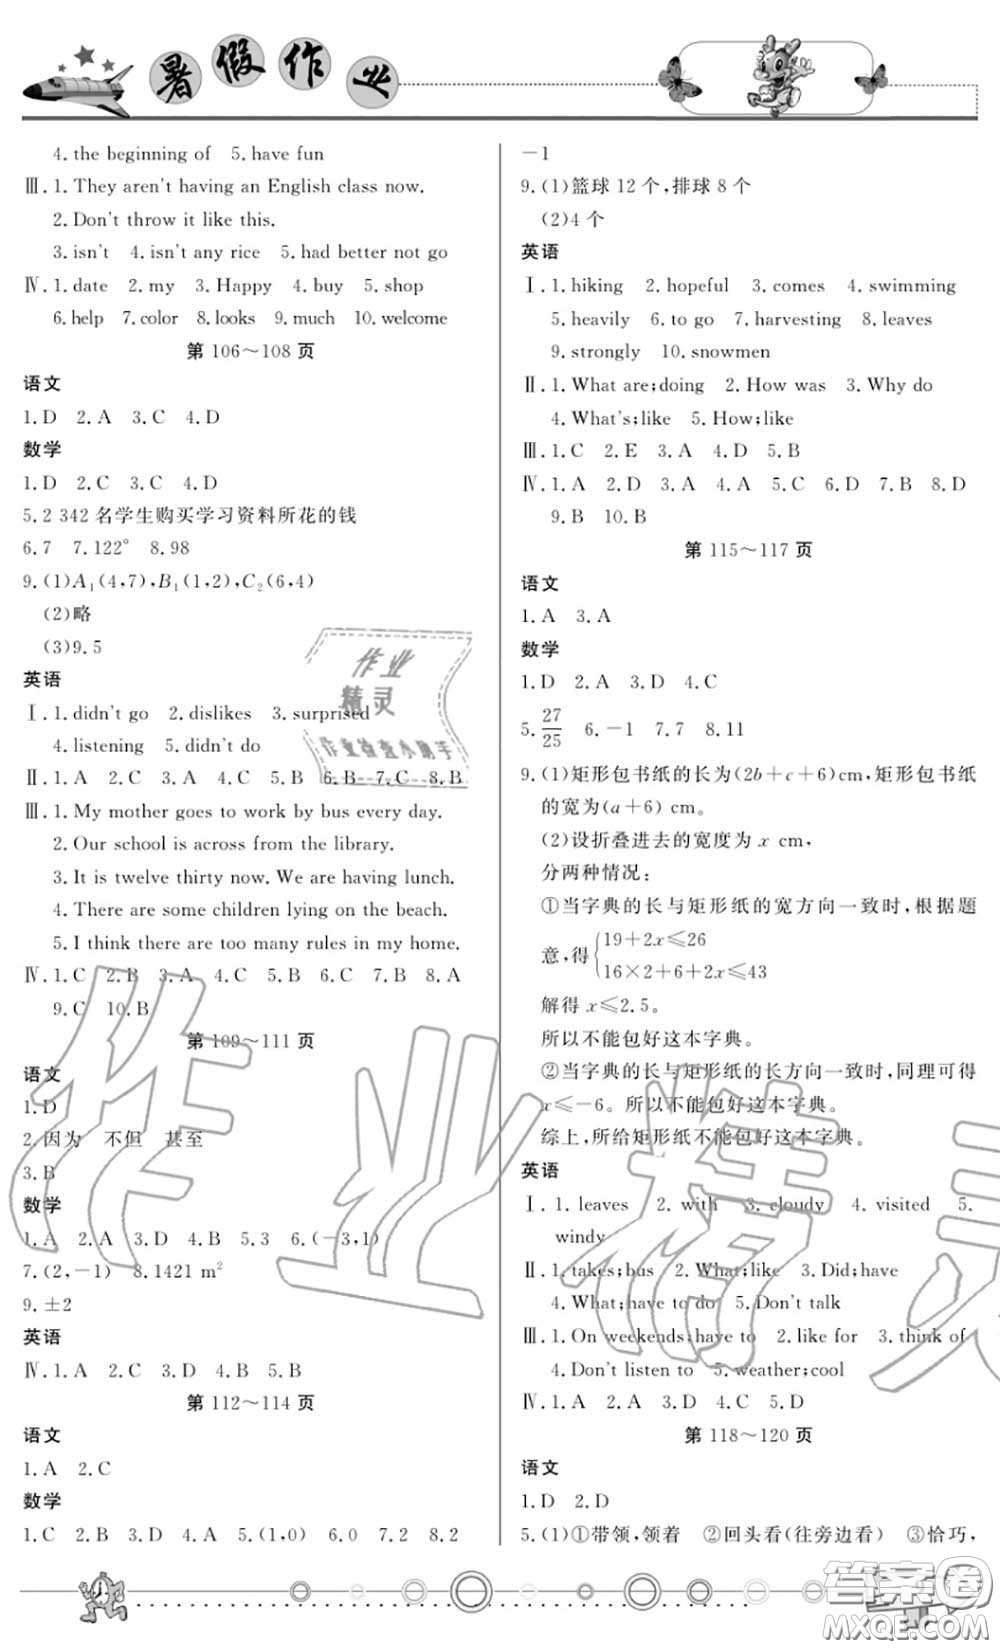 暑假作业
4. the beginning of 5. have fun
Ⅲ. 1. They aren't having an English class now.
2. Don't throw it like this.
3. isn't 4. isn't any rice 5. had better not go
Ⅳ. 1. date 2. my 3. Happy 4. buy 5. shop
6. help 7. color 8. looks 9. much 10. welcome
第 106～108 页
语文
1. D 2. A 3. C 4. D
数学
1. D 2. C 3. C 4. D
5. 2 342 名学生购买学习资料所花的钱
6. 7 7. 122° 8. 98
9. (1)A₁(4,7),B₁(1,2),C₂(6,4)
(2)略
(3)9.5
英语
Ⅰ. 1. didn't go 2. dislikes 3. surprised
4. listening 5. didn't do
Ⅱ. 1. A 2. A 3. C 4. C 5. B 6. B 7. C 8. B
Ⅲ. 1. My mother goes to work by bus every day.
2. Our school is across from the library.
3. It is twelve thirty now. We are having lunch.
4. There are some children lying on the beach.
5. I think there are too many rules in my home.
Ⅳ. 1. C 2. B 3. A 4. C 5. B 6. C 7. B 8. A
9. C 10. B
第 109～111 页
语文
1. D
2. 因为 不但 甚至
3. B
数学
1. A 2. A 3. D 4. B 5. 3 6. (－3,1)
7. (2,－1) 8. 1421 m²
9. ±2
英语
Ⅳ. 1. A 2. C 3. D 4. B 5. B
第 112～114 页
语文
1. A 2. C
数学
1. C 2. B 3. D 4. A 5. (1,0) 6. 0 7. 2 8. 2
－1
9. (1)篮球 12 个,排球 8 个
(2)4 个
英语
Ⅰ. 1. hiking 2. hopeful 3. comes 4. swimming
5. heavily 6. to go 7. harvesting 8. leaves
9. strongly 10. snowmen
Ⅱ. 1. What are;doing 2. How was 3. Why do
4. What's;like 5. How;like
Ⅲ. 1. C 2. E 3. A 4. D 5. B
Ⅳ. 1. A 2. D 3. A 4. A 5. C 6. D 7. B 8. D
9. B 10. B
第 115～117 页
语文
1. A 3. A
数学
1. D 2. A 3. D 4. C
5. 27/25 6. －1 7. 7 8. 11
9. (1)矩形包书纸的长为(2b＋c＋6)cm,矩形包书纸
的宽为(a＋6) cm。
(2)设折叠进去的宽度为 x cm,
分两种情况:
①当字典的长与矩形纸的宽方向一致时,根据题
意,得{19＋2x≤26
16×2＋6＋2x≤43
解得 x≤2.5。
所以不能包好这本字典。
②当字典的长与矩形纸的长方向一致时,同理可得
x≤－6。所以不能包好这本字典。
综上,所给矩形纸不能包好这本字典。
英语
Ⅰ. 1. leaves 2. with 3. cloudy 4. visited 5.
windy
Ⅱ. 1. takes;bus 2. What;like 3. Did;have
4. What;have to do 5. Don't talk
Ⅲ. 1. On weekends;have to 2. like for 3. think of
4. Don't listen to 5. weather;cool
Ⅳ. 1. A 2. D 3. D 4. C 5. D
第 118～120 页
语文
1. D 2. D
5. (1)①带领,领着 ②回头看(往旁边看) ③恰巧,
作业
精灵
作业检查小助手
作业精灵
答案圈
MXQE.COM